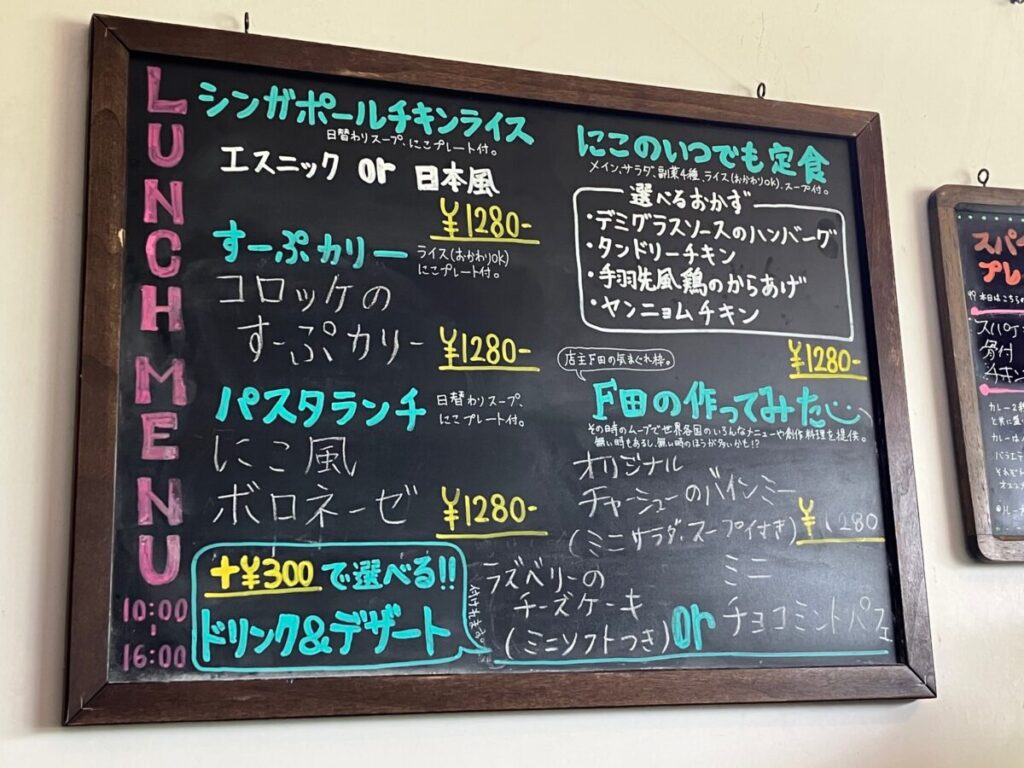 LUNCH MENU
10:00
-
16:00
シンガポールチキンライス
日替わりスープ、にこプレート付。
エスニック or 日本風
¥1280-
すーぷカリー
ライス(おかわりok)
にこプレート付。
コロッケの
すーぷカリー
¥1280-
パスタランチ
日替わりスープ、
にこプレート付。
にこ風
ボロネーゼ
¥1280-
+¥300で選べる!!
ドリンク&デザート
にこのいつでも定食
メイン、サラダ、副菜4種、ライス(おかわりok)、スープ付。
選べるおかず
・デミグラスソースのハンバーグ
・タンドリーチキン
・手羽先風鶏のからあげ
・ヤンニョムチキン
¥1280-
店主F田の気まぐれ枠。
F田の作ってみた
その時のムーブで世界各国のいろんなメニューや創作料理を提供。
無い時もあるし、無い時のほうが多いかも!?
オリジナル
チャーシューのバインミー
(ミニサラダ、スープ付き)
¥1280
ラズベリーの
チーズケーキ
(ミニソフトつき)
or
ミニ
チョコミントパフェ
スパイ
プレ
本日はこちらの
スパイ
骨付
チキン